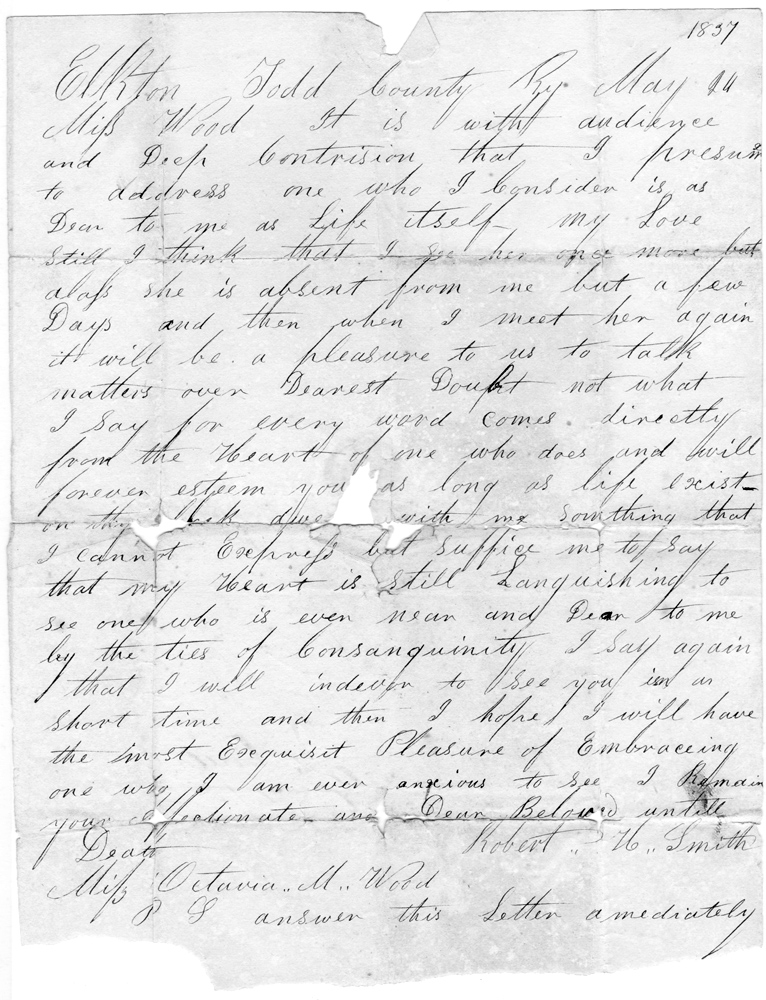 1837
Elkton Todd County Ky May 14
Miss Wood It is with audience
and Deep Contrision that I presum
to dddress one who I Consider is as
Dear to me as Life itself my Love
Still I think that I see her once more but
alass she is absent from me but a few
Days and then when I meet her again
it will be a pleasure to us to talk
matters over Dearest Doubt not what
I Say for every word comes directly
from the Heart of one who does and will
forever esteem you as long as life exist
on with me Somthing that
I cannot Express but suffice me to Say
that my Heart is Still Languishing to
see one who is ever near and Dear to me
by the ties of Consanguinity I Say again
that I will indevor to See you in as
Short time and then I hope I will have
the most Exquisit Pleasure of Embraceing
one who I am ever anxious to see I Remain
your affectionate and Dear Beloved untill
Death Robert ,, H ,, Smith
Miss Octavia ,, M ,, Wood
P S answer this Letter amediately